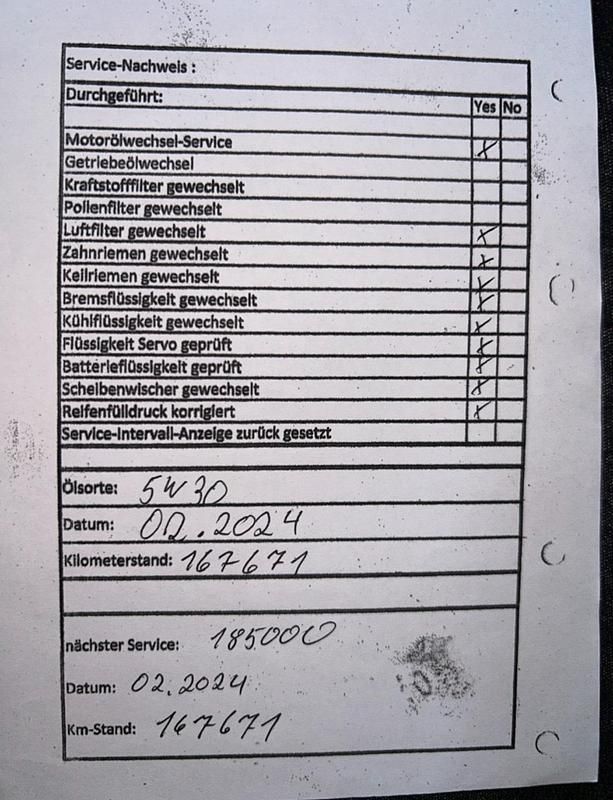 Service-Nachweis :
Durchgeführt: Yes No
Motorölwechsel-Service x
Getriebeölwechsel
Kraftstofffilter gewechselt
Pollenfilter gewechselt
Luftfilter gewechselt x
Zahnriemen gewechselt x
Keilriemen gewechselt x
Bremsflüssigkeit gewechselt x
Kühlflüssigkeit gewechselt x
Flüssigkeit Servo geprüft x
Batterieflüssigkeit geprüft x
Scheibenwischer gewechselt x
Reifenfülldruck korrigiert x
Service-Intervall-Anzeige zurück gesetzt
Ölsorte: 5W30
Datum: 02.2024
Kilometerstand: 167671
nächster Service: 185000
Datum: 02.2024
Km-Stand: 167671